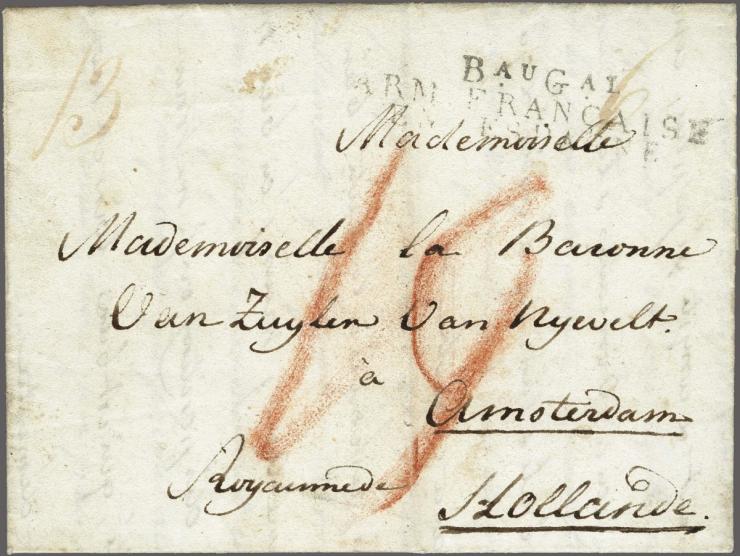 13
BAUGAL
ARM. FRANÇAISE
EN ESPAGNE
Mademoiselle
Mademoiselle la Baronne
Van Zuylen Van Nyevelt.
à
Amsterdam
Royaumede Hollande.
19